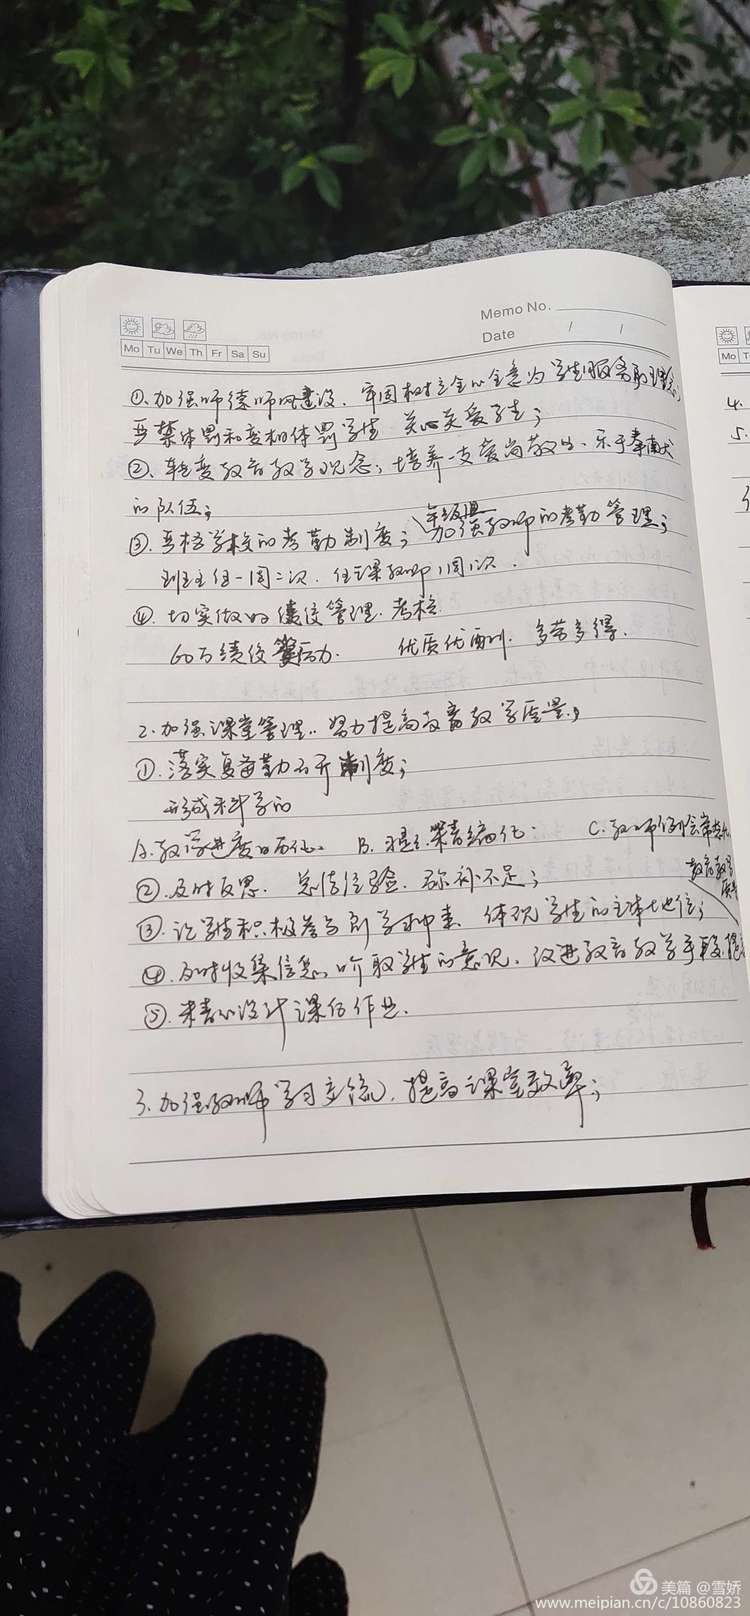 Memo No.
Date / /
Mo Tu We Th Fr Sa Su
①.加强师德师风建设.牢固树立全心全意为学生服务的理念,
严禁体罚和变相体罚学生 关心关爱学生;
②.转变教育教学观念;培养一支爱岗敬业、乐于奉献
的队伍;
年级组
③.严格学校的考勤制度;加强教师的考勤管理;
班主任一周二次.任课教师1周1次.
④.切实做好绩效管理.考核.
60万绩效 优质优酬.多劳多得.
2.加强课堂管理..努力提高教育教学质量;
①.落实 制度;
形成科学的
A.教学进度 B. C.教师例会常态化
教育教学
②.及时反思.总结经验.弥补不足;
③.让学生积极参与到学习中来.体现学生的主体地位;
④.及时收集信息.听取学生的意见.改进教育教学手段.提
⑤.精心设计课后作业.
3.加强教师学习交流,提高课堂效率;
Mo T
4.
5.
美篇 @雪娇
www.meipian.cn/c/10860823